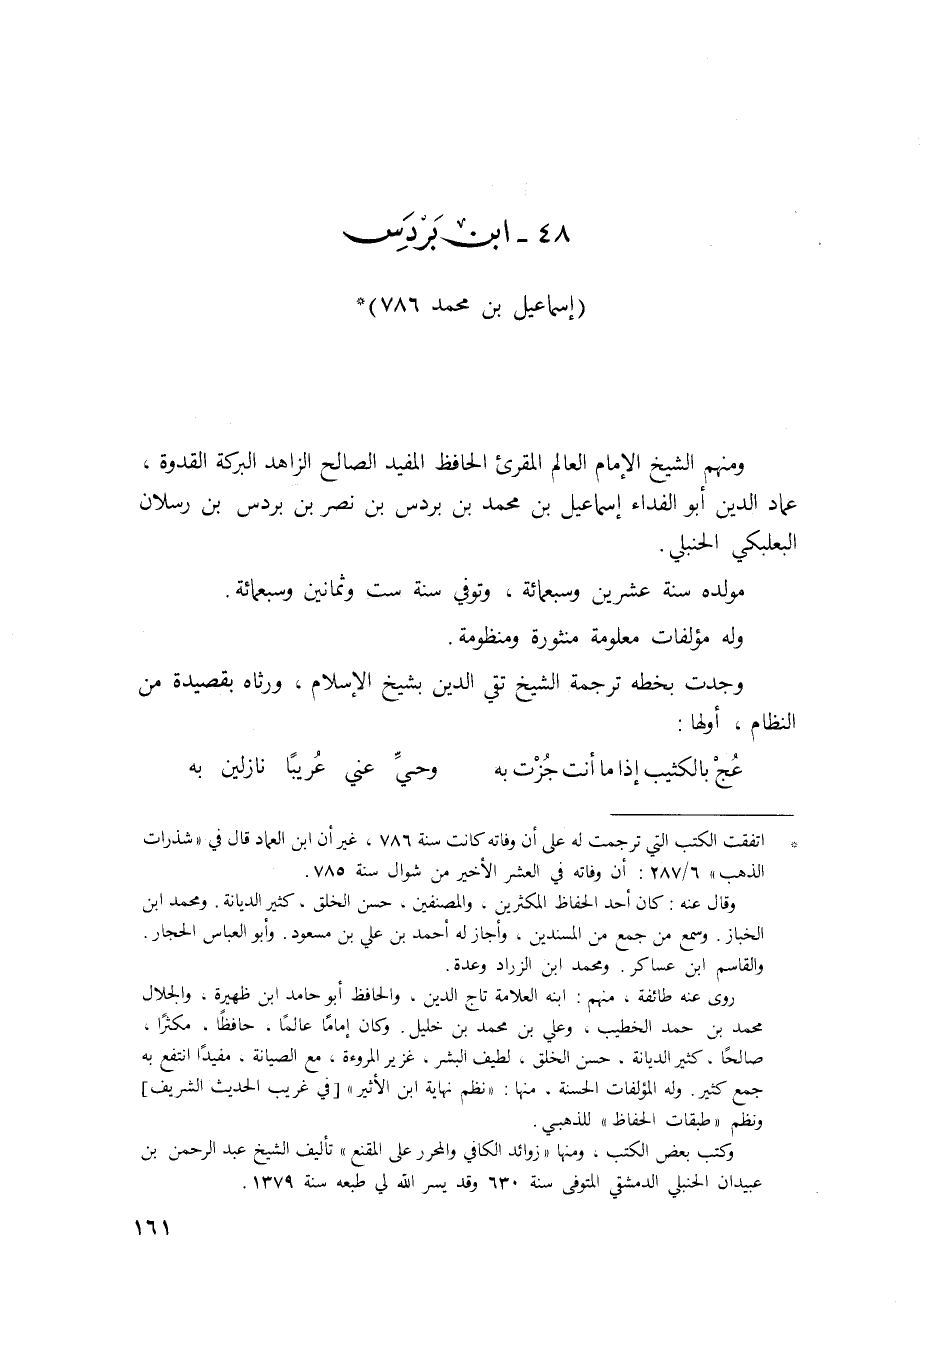 ٤٨ ـ ابن بَرْدَس
(إسماعيل بن محمد ٧٨٦)*
ومنهم الشيخ الإمام العالم المقرئ الحافظ المفيد الصالح الزاهد البركة القدوة ،
عماد الدين أبو الفداء إسماعيل بن محمد بن بردس بن نصر بن بردس بن رسلان
البعلبكي الحنبلي .
مولده سنة عشرين وسبعمائة ، وتوفي سنة ست وثمانين وسبعمائة .
وله مؤلفات معلومة منثورة ومنظومة .
وجدت بخطه ترجمة الشيخ تقي الدين بشيخ الإسلام ، ورثاه بقصيدة من
النظام ، أولها :
عُجْ بالكثيب إذا ما أنت جُزْت به وحيِّ عني عُريبًا نازلين به
* اتفقت الكتب التي ترجمت له على أن وفاته كانت سنة ٧٨٦ ، غير أن ابن العماد قال في « شذرات
الذهب » ٢٨٧/٦ : أن وفاته في العشر الأخير من شوال سنة ٧٨٥ .
وقال عنه : كان أحد الحفاظ المكثرين ، والمصنفين ، حسن الخلق ، كثير الديانة . ومحمد ابن
الخباز . وسمع من جمع من المسندين ، وأجاز له أحمد بن علي بن مسعود . وأبو العباس الحجار .
والقاسم ابن عساكر . ومحمد ابن الزراد وعدة .
روى عنه طائفة ، منهم : ابنه العلامة تاج الدين ، والحافظ أبو حامد ابن ظهيرة ، والجلال
محمد بن حمد الخطيب ، وعلي بن محمد بن خليل . وكان إمامًا عالمًا ، حافظًا ، مكثرًا ،
صالحًا ، كثير الديانة ، حسن الخلق ، لطيف البشر ، غزير المروءة ، مع الصيانة ، مفيدًا انتفع به
جمع كثير . وله المؤلفات الحسنة ، منها : « نظم نهاية ابن الأثير » [في غريب الحديث الشريف]
ونظم « طبقات الحفاظ » للذهبي .
وكتب بعض الكتب ، ومنها « زوائد الكافي والمحرر على المقنع » تأليف الشيخ عبد الرحمن بن
عبيدان الحنبلي الدمشقي المتوفى سنة ٦٣٠ وقد يسر الله لي طبعه سنة ١٣٧٩ .
١٦١